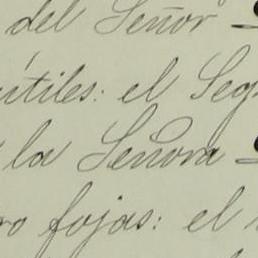 del Señor
útiles: el Seg
la Señora
ro fojas: el